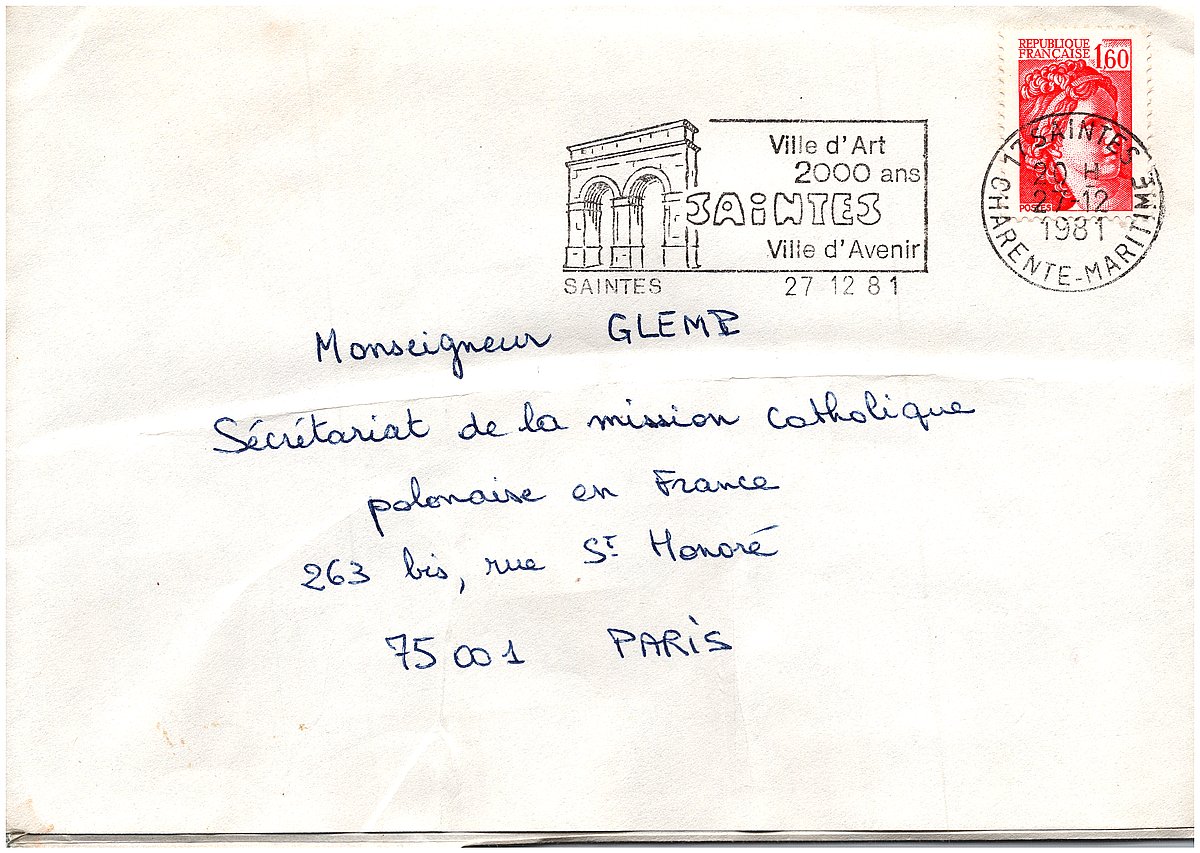 REPUBLIQUE
FRANÇAISE 1,60
POSTES
Ville d'Art
2000 ans
SAiNTES
Ville d'Avenir
SAINTES 27 12 81
17 SAINTES
20 H
27-12
1981
CHARENTE-MARITIME
Monseigneur GLEMP
Sécrétariat de la mission catholique
polonaise en France
263 bis, rue St Honoré
75 001 PARIS